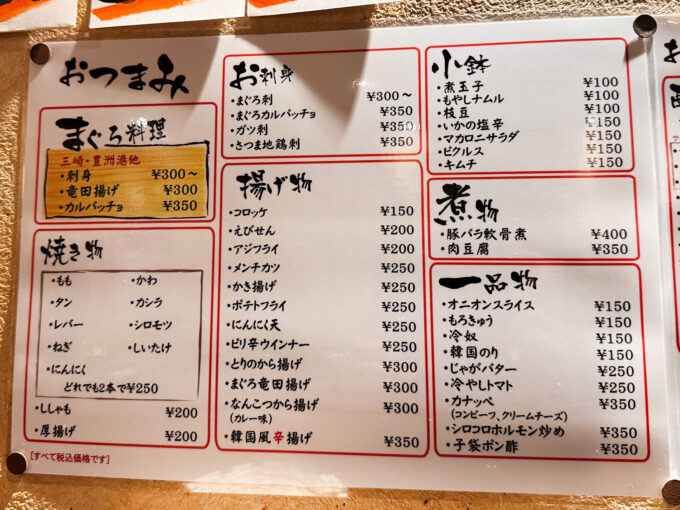 おつまみ
まぐろ料理
三崎・豊洲港他
・刺身 ¥300～
・竜田揚げ ¥300
・カルパッチョ ¥350
焼き物
・もも ・かわ
・タン ・ガシラ
・レバー ・シロモツ
・ねぎ ・しいたけ
・にんにく
どれでも2本で¥250
・ししゃも ¥200
・厚揚げ ¥200
[すべて税込価格です]
お刺身
・まぐろ刺 ¥300～
・まぐろカルパッチョ ¥350
・ガツ刺 ¥350
・さつま地鶏刺 ¥350
揚げ物
・コロッケ ¥150
・えびせん ¥200
・アジフライ ¥200
・メンチカツ ¥250
・かき揚げ ¥250
・ポテトフライ ¥250
・にんにく天 ¥250
・ピリ辛ウインナー ¥250
・とりのから揚げ ¥300
・まぐろ竜田揚げ ¥300
・なんこつから揚げ ¥300
(カレー味)
・韓国風辛揚げ ¥350
小鉢
・煮玉子 ¥100
・もやしナムル ¥100
・枝豆 ¥100
・いかの塩辛 ¥150
・マカロニサラダ ¥150
・ピクルス ¥150
・キムチ ¥150
煮物
・豚バラ軟骨煮 ¥400
・肉豆腐 ¥350
一品物
・オニオンスライス ¥150
・もろきゅう ¥150
・冷奴 ¥150
・韓国のり ¥150
・じゃがバター ¥250
・冷やしトマト ¥250
・カナッペ ¥350
(コンビーフ、クリームチーズ)
・シロコロホルモン炒め ¥350
・子袋ポン酢 ¥350